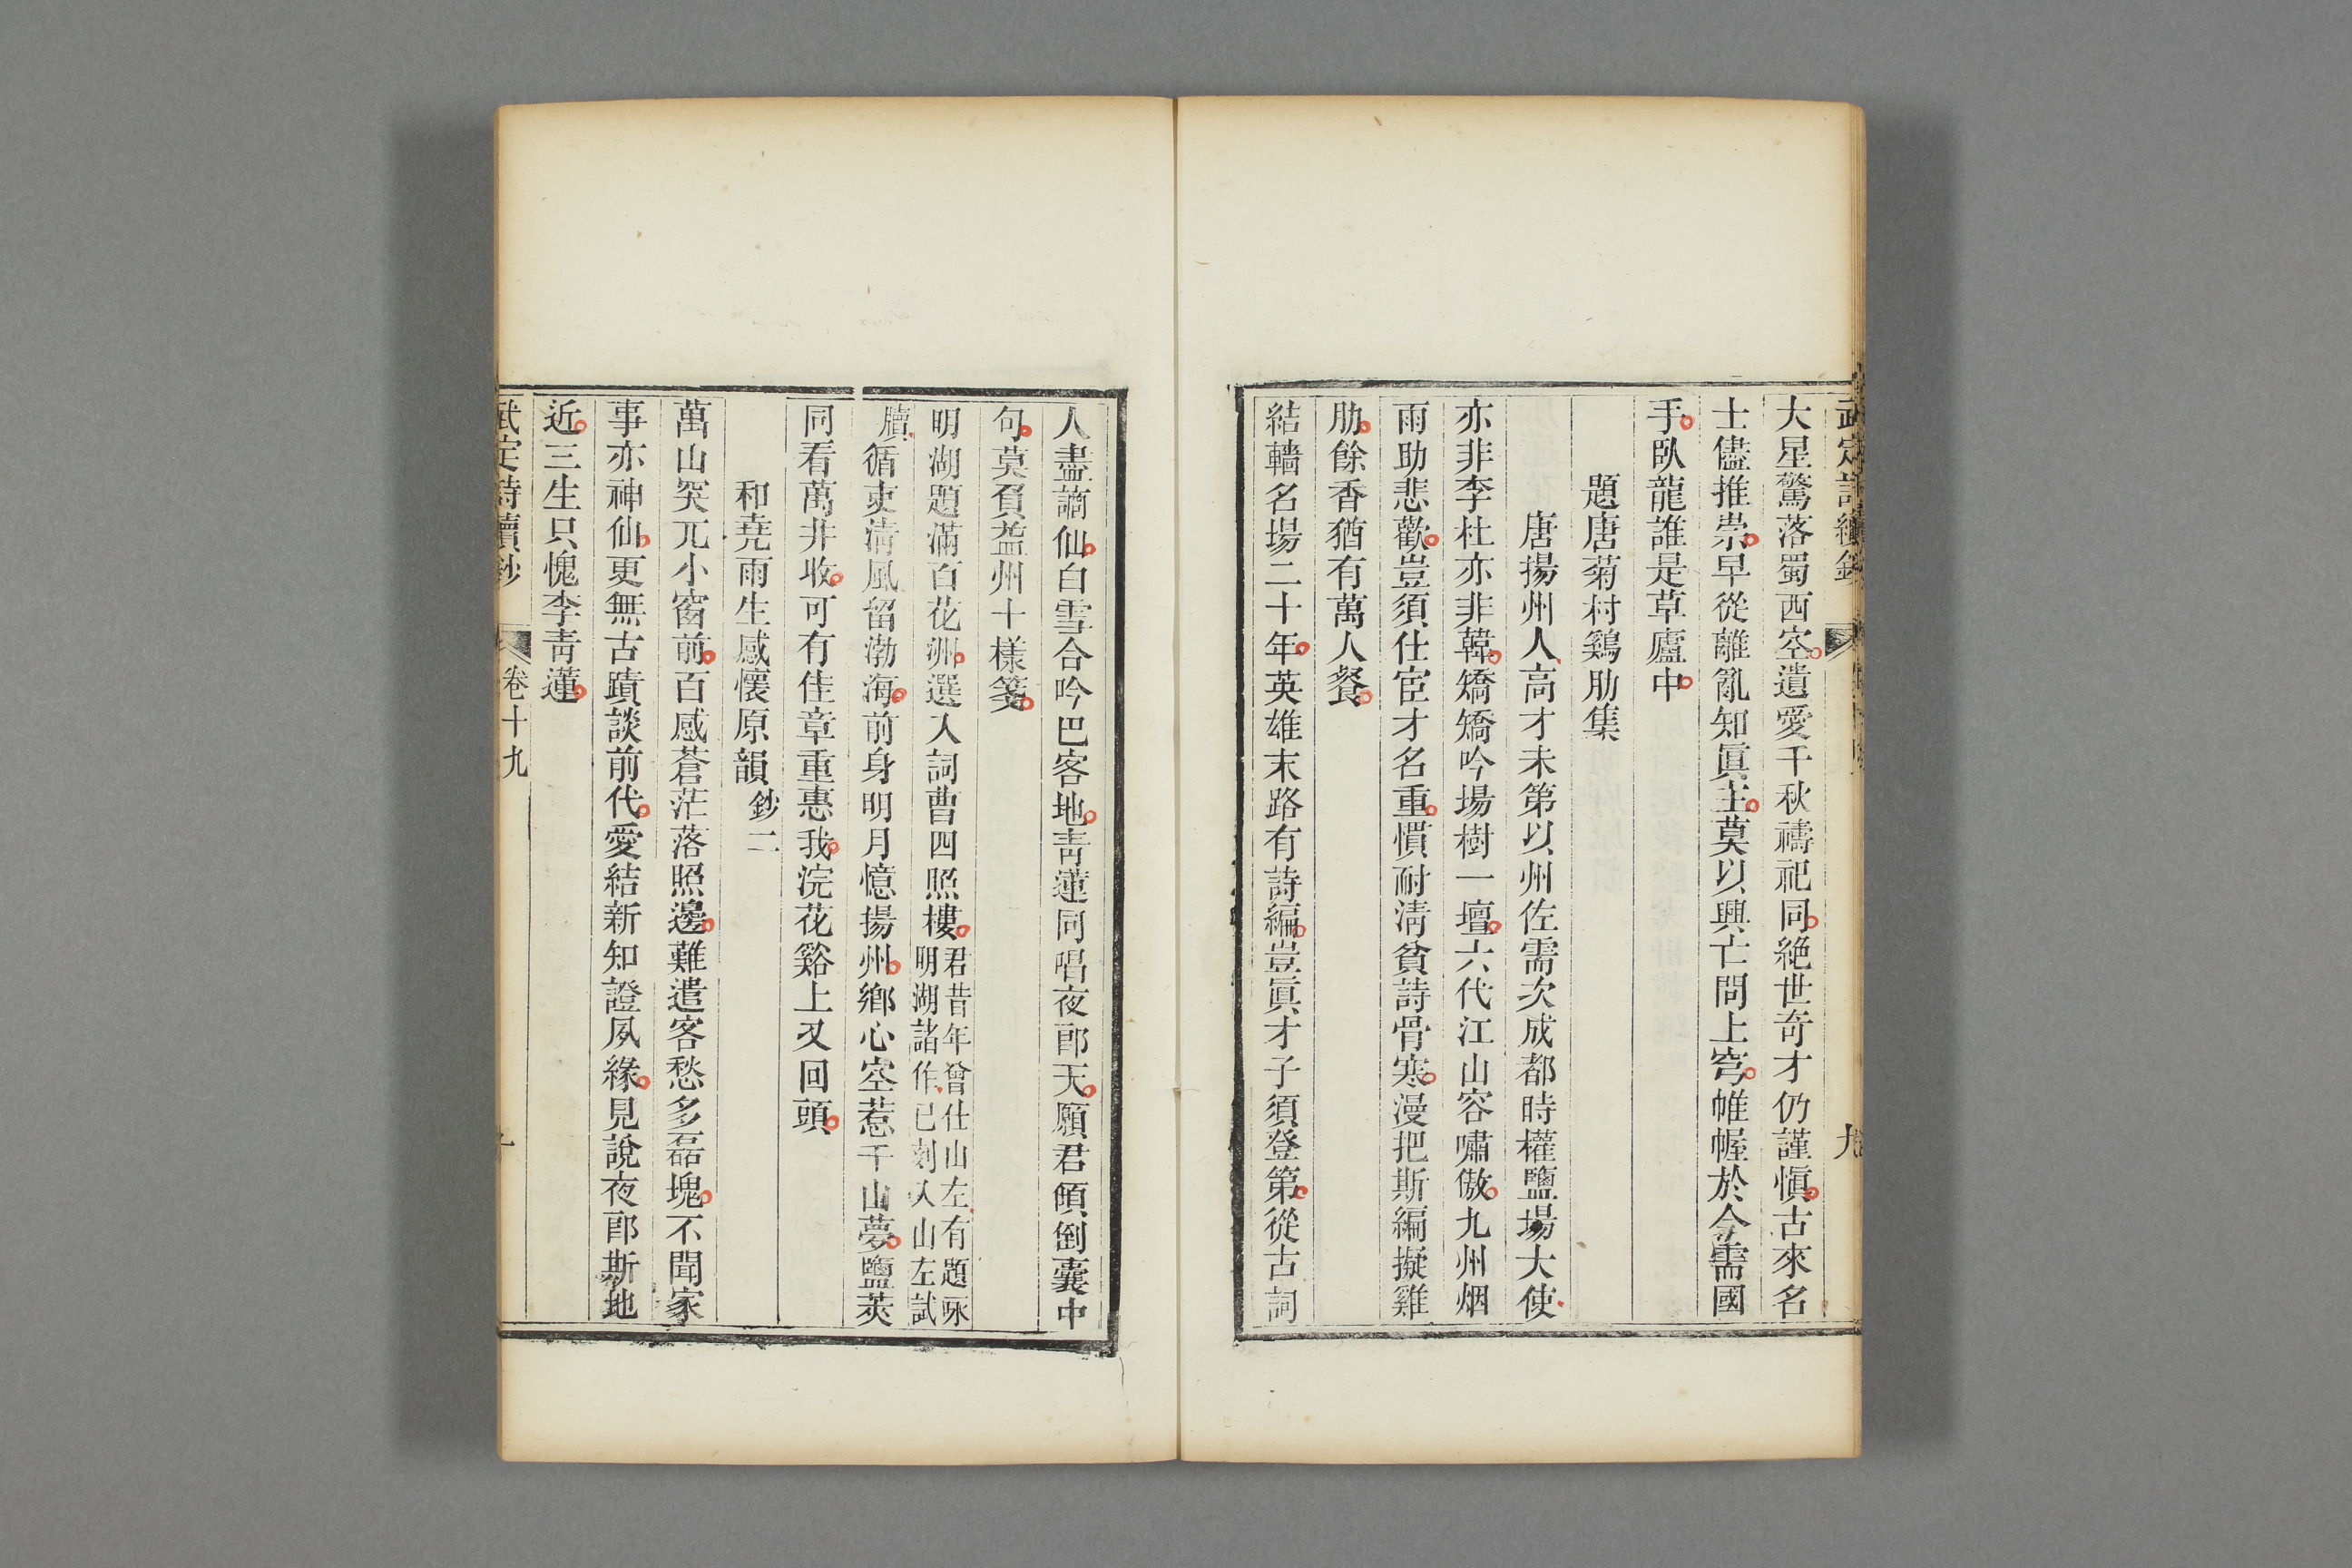 大星驚落蜀西空遺愛千秋禱祀同絶世奇才仍謹愼古來名
士儘推崇早從離亂知眞主莫以興亡問上穹帷幄於今需國
手臥龍誰是草廬中
題唐菊村鷄肋集
唐揚州人高才未第以州佐需次成都時權鹽場大使
亦非李杜亦非韓矯矯吟場樹一壇六代江山容嘯傲九州烟
雨助悲歡豈須仕宦才名重慣耐淸貧詩骨寒漫把斯編擬雞
肋餘香猶有萬人餐
結轖名場二十年英雄末路有詩編豈眞才子須登第從古詞
人盡謫仙白雪合吟巴客地靑蓮同唱夜郎天願君傾倒囊中
句莫負益州十樣箋
明湖題滿百花洲選入詞曹四照樓君昔年曾仕山左有題咏
明湖諸作已刻入山左試
牘循吏淸風留渤海前身明月憶揚州鄕心空惹千山夢鹽莢
同看萬井收可有佳章重惠我浣花谿上又回頭
和堯雨生感懷原韻鈔二
萬山突兀小窗前百感蒼茫落照邊難遣客愁多磊塊不聞家
事亦神仙更無古蹟談前代愛結新知證夙緣見說夜郎斯地
近三生只愧李靑蓮
武定詩續鈔 卷十九